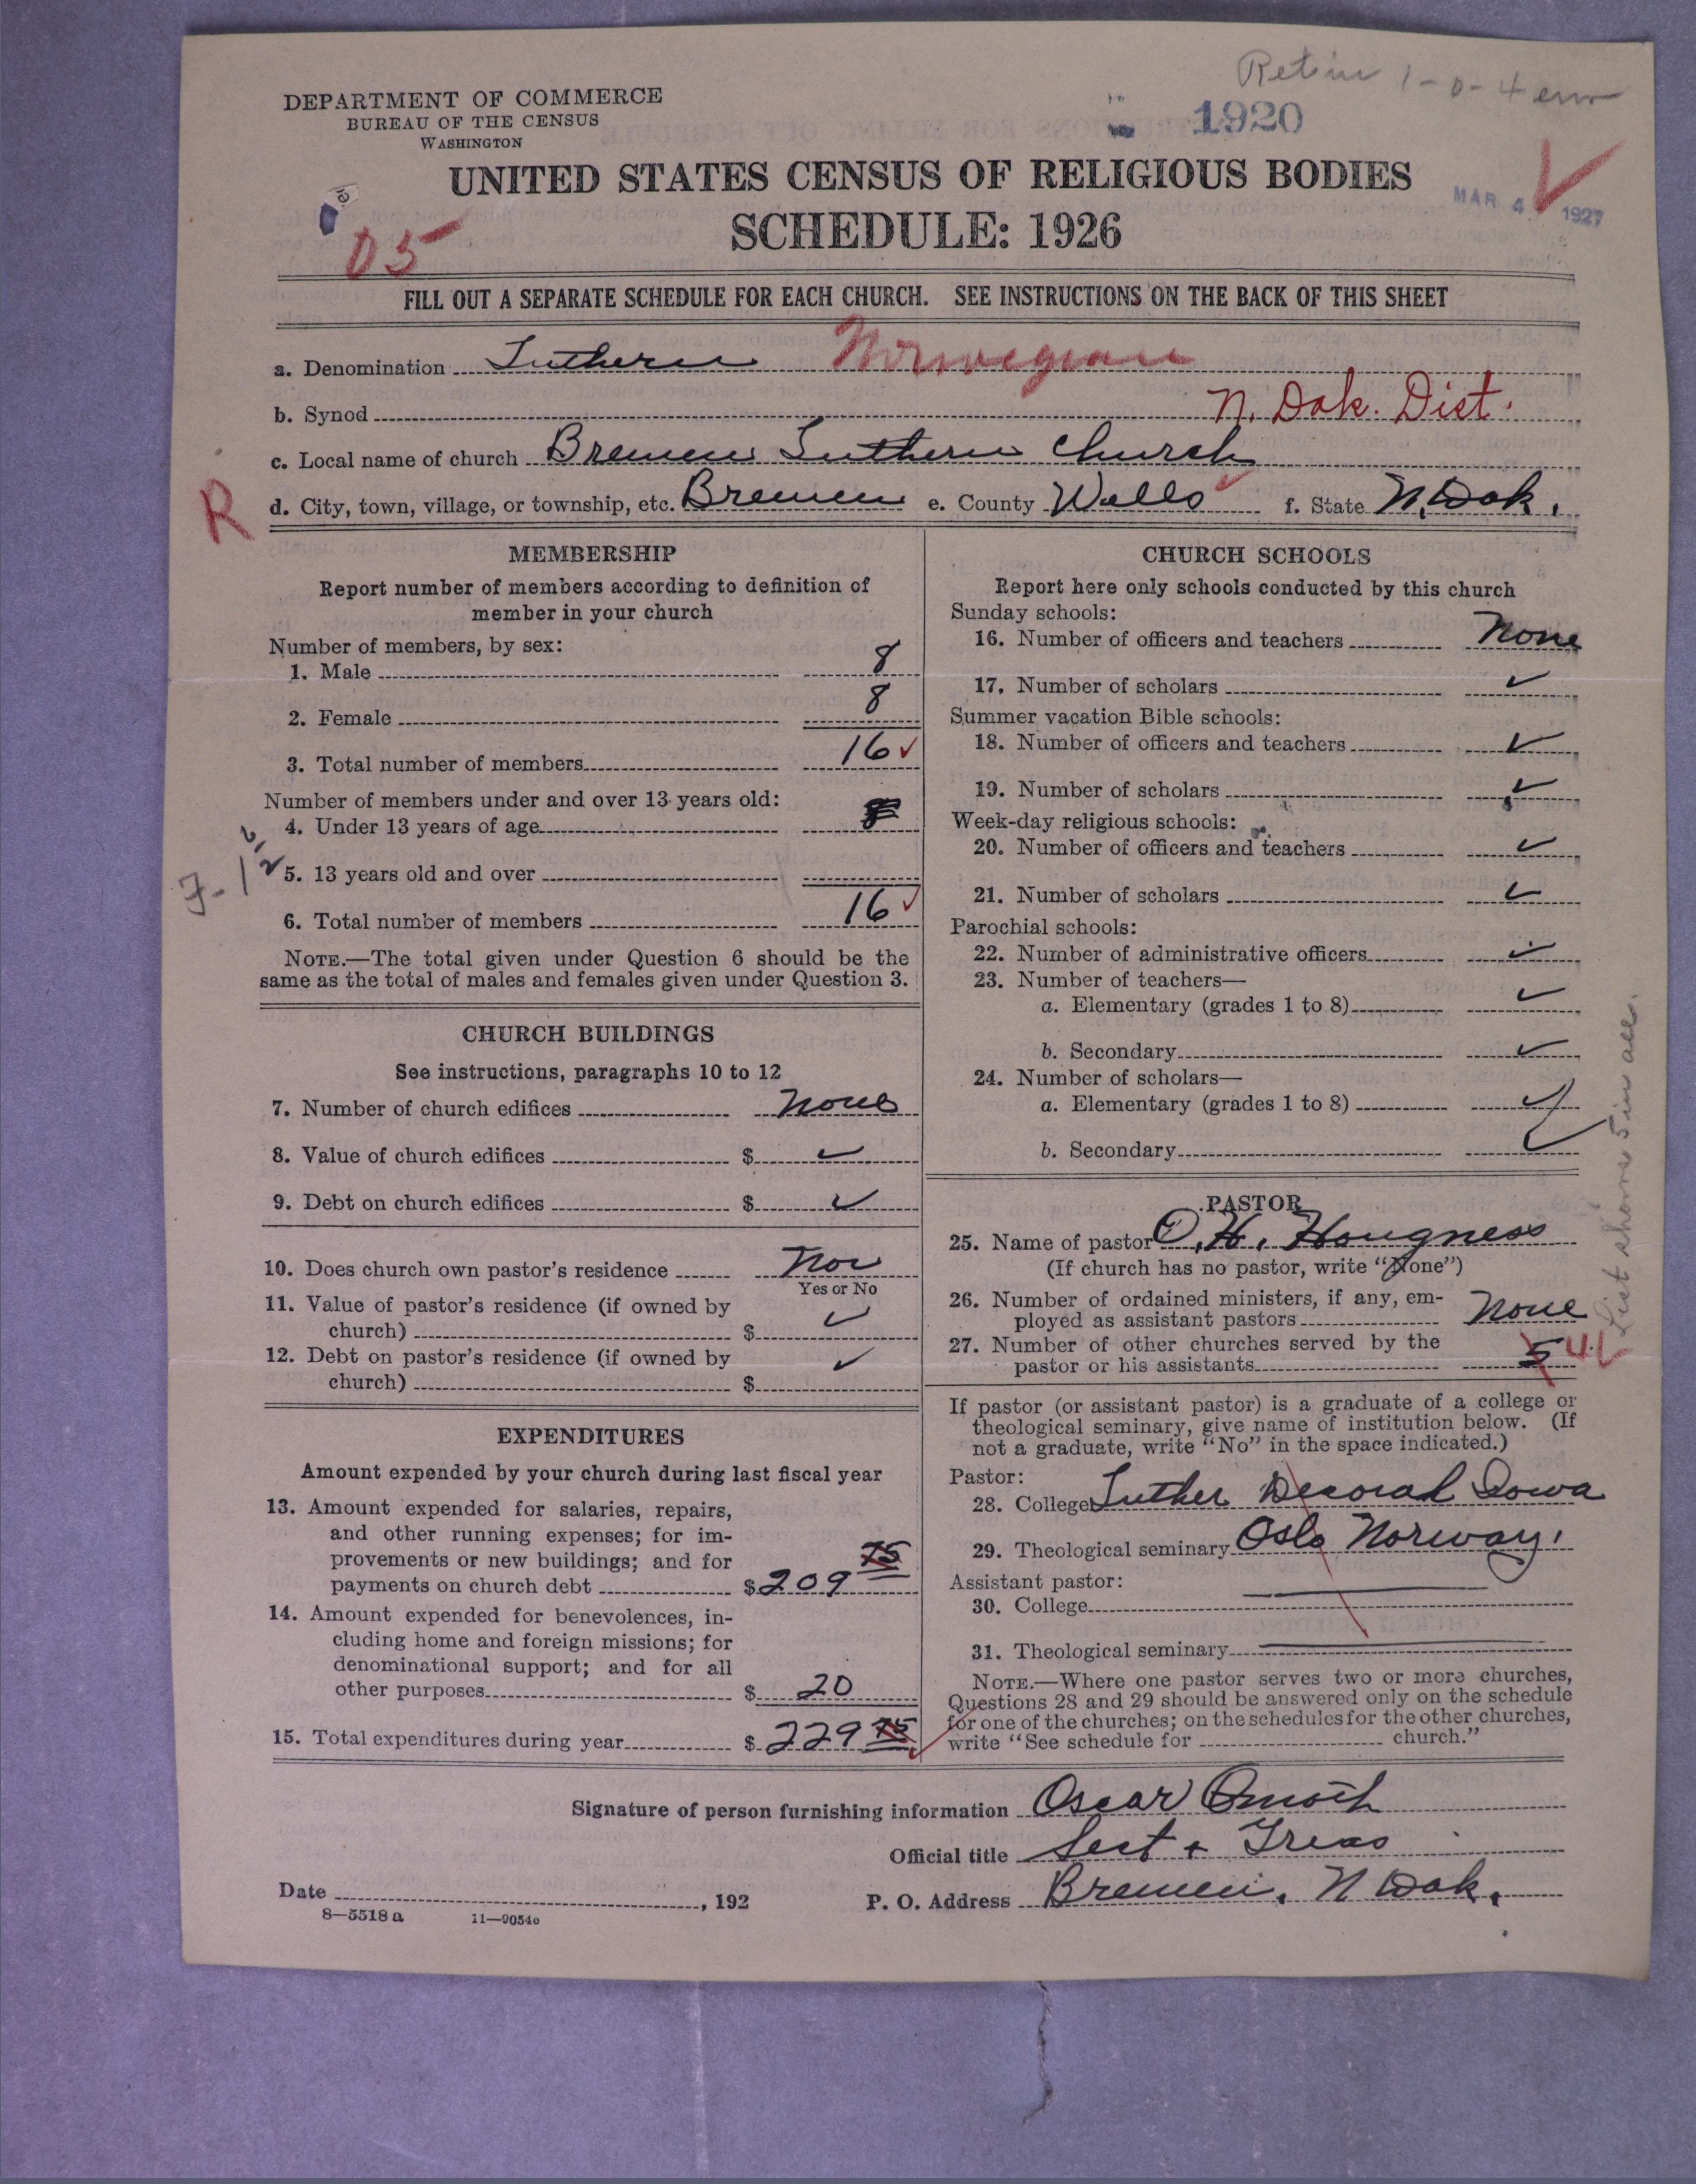 Retin 1-0-4
DEPARTMENT OF COMMERCE
BUREAU OF THE CENSUS
WASHINGTON
1920
UNITED STATES CENSUS OF RELIGIOUS BODIES
MAR 4 1927
SCHEDULE: 1926
05
FILL OUT A SEPARATE SCHEDULE FOR EACH CHURCH. SEE INSTRUCTIONS ON THE BACK OF THIS SHEET
a. Denomination Luthern Norwegian
b. Synod N. Dak. Dist.
c. Local name of church Bremen Luthern Church
R
d. City, town, village, or township, etc. Bremen e. County Wells f. State N. Dak.
MEMBERSHIP
Report number of members according to definition of
member in your church
Number of members, by sex:
1. Male 8
2. Female 8
3. Total number of members 16
Number of members under and over 13 years old:
4. Under 13 years of age
5. 13 years old and over
6. Total number of members 16
NOTE.—The total given under Question 6 should be the
same as the total of males and females given under Question 3.
CHURCH BUILDINGS
See instructions, paragraphs 10 to 12
7. Number of church edifices None
8. Value of church edifices $ ✓
9. Debt on church edifices $ ✓
10. Does church own pastor's residence
Yes or No
11. Value of pastor's residence (if owned by
church) $ ✓
12. Debt on pastor's residence (if owned by
church) $ ✓
EXPENDITURES
Amount expended by your church during last fiscal year
13. Amount expended for salaries, repairs,
and other running expenses; for im-
provements or new buildings; and for
payments on church debt $ 209 75
14. Amount expended for benevolences, in-
cluding home and foreign missions; for
denominational support; and for all
other purposes $ 20
15. Total expenditures during year $ 229 75
CHURCH SCHOOLS
Report here only schools conducted by this church
Sunday schools:
16. Number of officers and teachers None
17. Number of scholars ✓
Summer vacation Bible schools:
18. Number of officers and teachers ✓
19. Number of scholars ✓
Week-day religious schools:
20. Number of officers and teachers ✓
21. Number of scholars ✓
Parochial schools:
22. Number of administrative officers ✓
23. Number of teachers—
a. Elementary (grades 1 to 8) ✓
b. Secondary ✓
24. Number of scholars—
a. Elementary (grades 1 to 8) ✓
b. Secondary ✓
PASTOR
25. Name of pastor O. H. Hougness
(If church has no pastor, write "None")
26. Number of ordained ministers, if any, em-
ployed as assistant pastors None
27. Number of other churches served by the
pastor or his assistants 5 4
List shows 5 in all.
If pastor (or assistant pastor) is a graduate of a college or
theological seminary, give name of institution below. (If
not a graduate, write "No" in the space indicated.)
Pastor:
28. College Luther Decorah Iowa
29. Theological seminary Oslo Norway.
Assistant pastor:
30. College
31. Theological seminary
NOTE.—Where one pastor serves two or more churches,
Questions 28 and 29 should be answered only on the schedule
for one of the churches; on the schedules for the other churches,
write "See schedule for church."
Signature of person furnishing information Oscar
Official title Sect + Treas
Date , 192
P. O. Address Bremen, N Dak.
8—5518 a 11—9054c